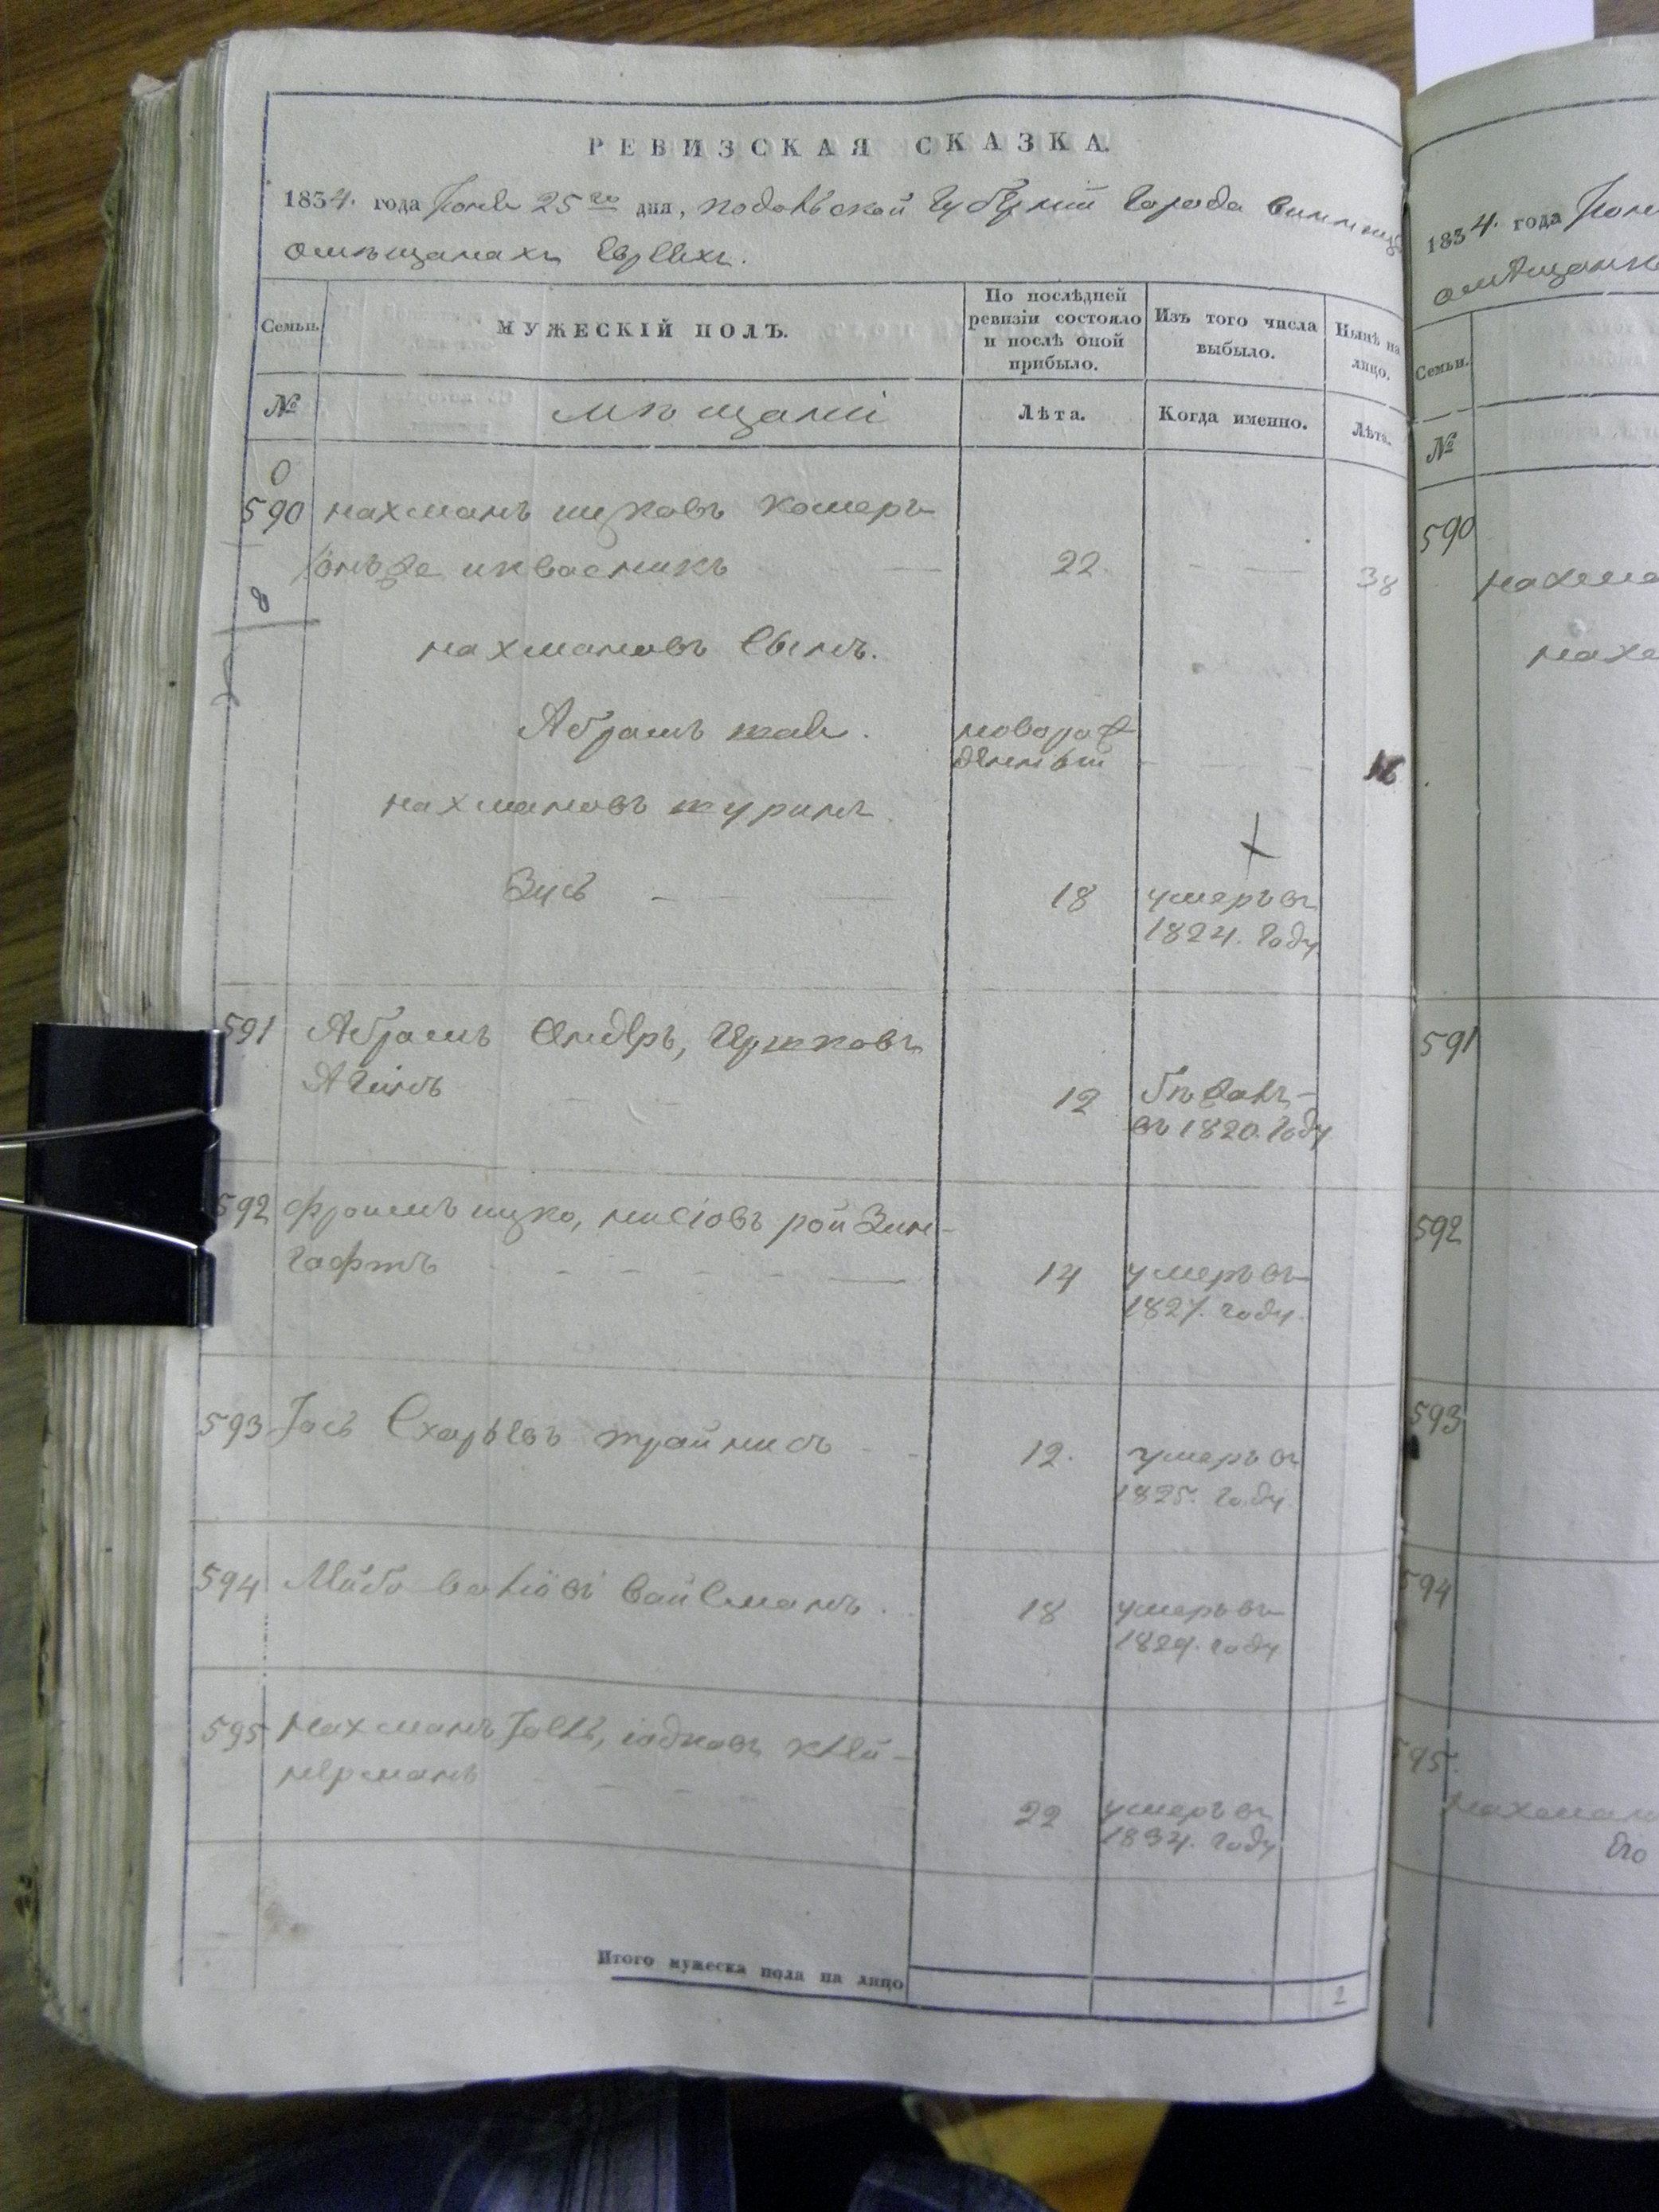 РЕВИЗСКАЯ СКАЗКА.
1834. года Іюня 25го дня, подольской Губерніи Города винницы
омѣщанахъ Евреяхъ.
Семьи.
МУЖЕСКІЙ ПОЛЪ.
По послѣдней ревизіи состояло и послѣ оной прибыло.
Изъ того числа выбыло.
Нынѣ на лицо.
№
мѣщани
Лѣта.
Когда именно.
Лѣта.
0
590 нахманъ ицковъ
иквасникъ 22 38
8
нахмановъ Сынъ.
Абрамъ новорож
денный 16
нахмановъ шуринъ
Зусь 18 умеръ въ
1824. Году
591 Абрамъ Сендеръ, Гершковъ
12 бѣжалъ
въ 1820. Году
592 Фроимъ ицко, нисіовъ ройзин-
гафтъ 14 умеръ въ
1827. году.
593 Іось трайнисъ 12. умеръ въ
1825. Году.
594 Вайсманъ. 18 умеръ въ
году
595 нахманъ Іось, іодковъ клей-
нерманъ 22 умеръ въ
1834. Году
Итого мужеска пола на лицо 2
1834. года Іюн
омѣщанк
Семьи.
№
590
нахма
нахм
591
592
593
594
595.
нахман
Его